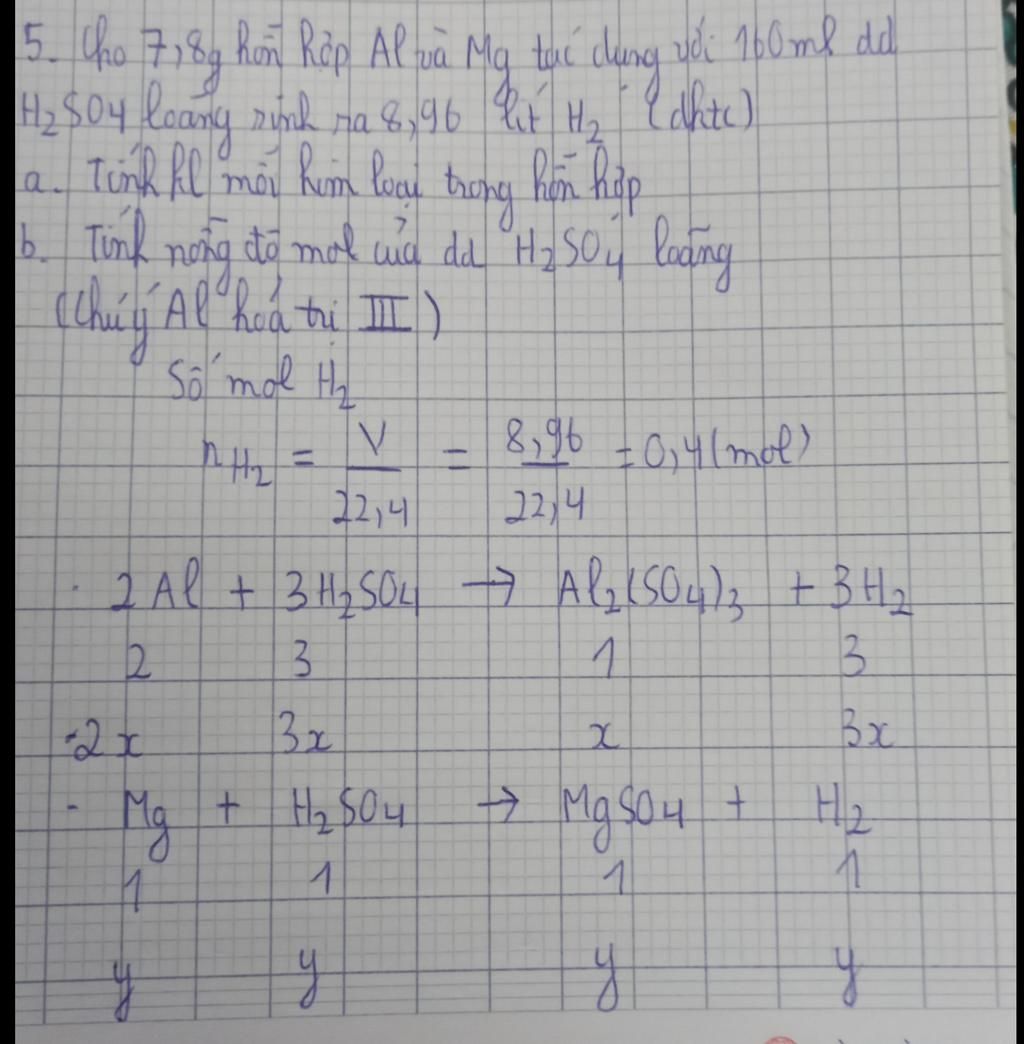 5. Cho 7,8g hỗn hợp Al và Mg tác dụng với 160ml dd
H2SO4 loãng sinh ra 8,96 lít H2 (đktc)
a. Tính kl mỗi kim loại trong hỗn hợp
b. Tính nồng độ mol của dd H2SO4 loãng
(Chú ý Al hoá trị III)
Số mol H2
nH2 = V/22,4 = 8,96/22,4 = 0,4(mol)
· 2Al + 3H2SO4 → Al2(SO4)3 + 3H2
2 3 1 3
-2x 3x x 3x
- Mg + H2SO4 → MgSO4 + H2
1 1 1 1
y y y y